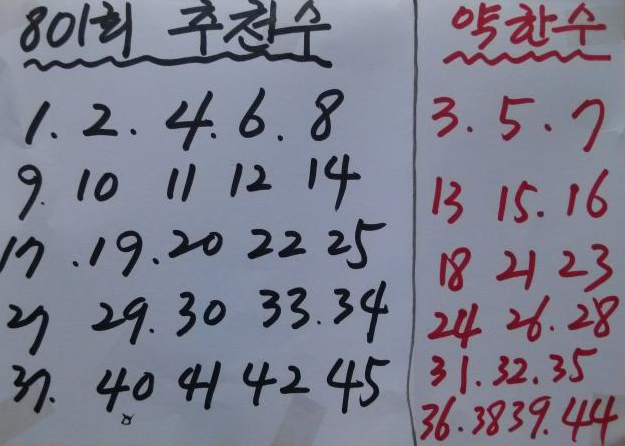 801회 추천수
1. 2. 4. 6. 8
9. 10 11 12 14
17 .19. 20 22 25
27 29. 30 33. 34
37. 40 41 42 45
약한수
3. 5. 7
13 15. 16
18 21 23
24 26. 28
31. 32. 35
36. 38 39. 44